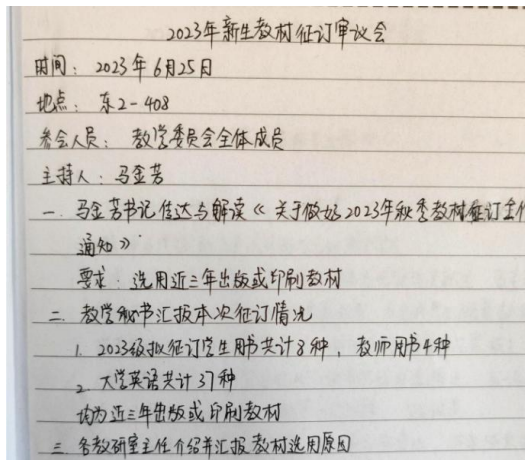 2023年新生教材征订审议会
时间：2023年6月25日
地点：东2-408
参会人员：教学委员会全体成员
主持人：马金芳
一.马金芳书记传达与解读《关于做好2023年秋季教材征订工作
通知》
要求：选用近三年出版或印刷教材
二.教学秘书汇报本次征订情况
1.2023级拟征订学生用书共计8种，教师用书4种
2.大学英语共计37种
均为近三年出版或印刷教材
三.各教研室主任介绍并汇报教材选用原因